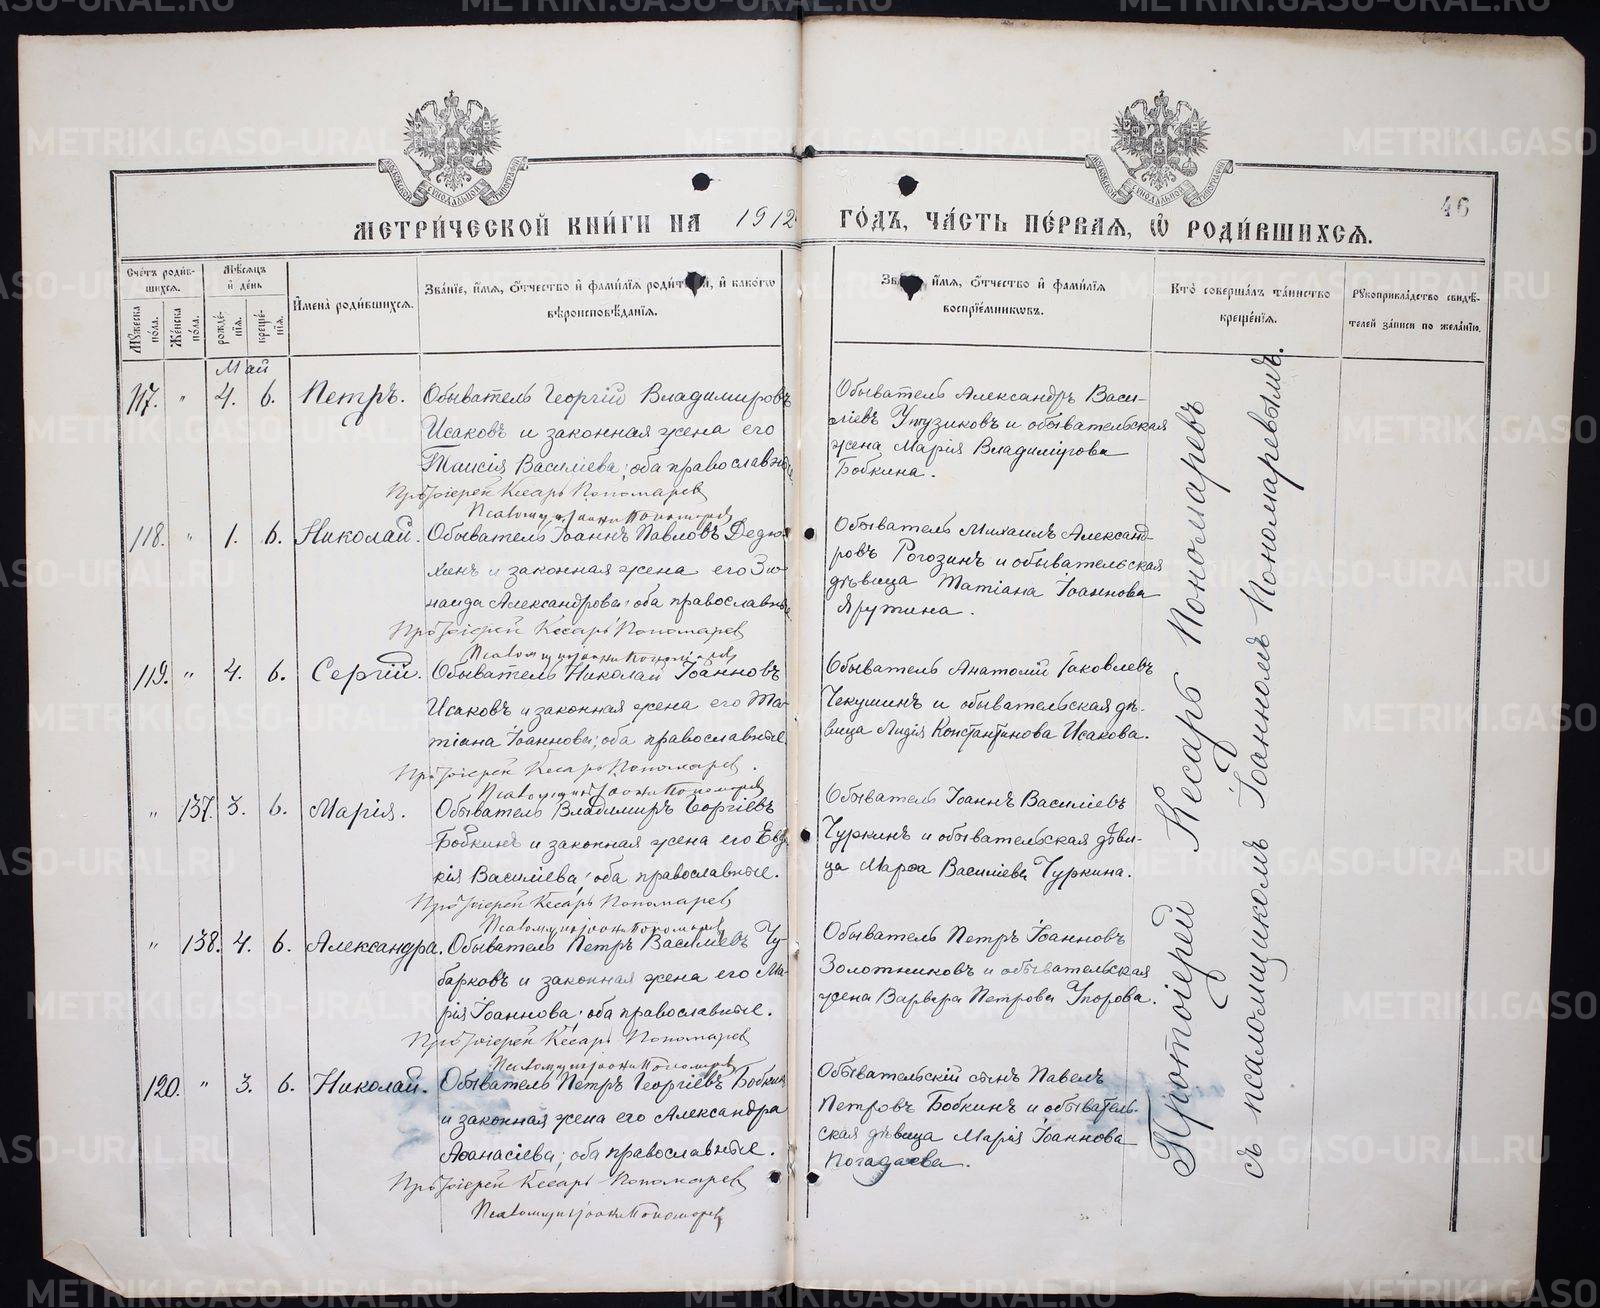 МЕТРИ́ЧЕСКОЙ КНИ́ГИ НА 1912 ГО́ДЪ, ЧА́СТЬ ПЕ́РВАЯ, Ѿ РОДИ́ВШИХСЯ.
46
Сче́тъ роди́в-
шихся.
Му́жеска по́ла.
Же́нска по́ла.
Мѣ́сяцъ
и́ де́нь
рожде́-
нїя.
креще́-
нїя.
И҆мена̀ роди́вшихся.
Зва́нїе, и҆́мя, ѻ҆́тчество и҆ фами́лїя роди́телей, и҆ како́гѡ
вѣроисповѣ́данїя.
Зва́нїе, и҆́мя, ѻ҆́тчество и҆ фами́лїя
воспрїе́мникѡвъ.
Кто̀ соверша́лъ та́инство
креще́нїя.
Рукоприкла́дство свидѣ́-
телей за́писи по жела́нїю.
Май
117. " 4. 6. Петръ.
Обыватель Георгій Владимировъ
Исаковъ и законная жена его
Таисія Василіева; оба православные
Протоіерей Кесарь Пономарев
Псаломщик Іоанн Пономарев
Обыватель Александръ Васи-
ліевъ Утузиковъ и обывательская
жена Марія Владимірова
Бобкина.
118. " 1. 6. Николай.
Обыватель Іоаннъ Павловъ Дедю-
хинъ и законная жена его Зи-
наида Александрова; оба православные
Протоіерей Кесарь Пономарев
Псаломщик Іоанн Пономарев
Обыватель Михаилъ Александ-
ровъ Рогозинъ и обывательская
дѣвица Татіана Іоаннова
Ярутина.
119. " 4. 6. Сергій.
Обыватель Николай Іоанновъ
Исаковъ и законная жена его Та-
тіана Іоаннова; оба православные
Протоіерей Кесарь Пономарев.
Псаломщик Іоанн Пономарев
Обыватель Анатолій Іаковлевъ
Чекушинъ и обывательская дѣ-
вица Лидія Константинова Исакова.
" 137. 3. 6. Марія.
Обыватель Владимиръ Георгіевъ
Бобкинъ и законная жена его Евдо-
кія Василіева; оба православные.
Протоіерей Кесарь Пономарев
Псаломщик Іоанн Пономарев
Обыватель Іоаннъ Василіевъ
Чуркинъ и обывательская дѣви-
ца Марѳа Василіева Чуркина.
" 138. 4. 6. Александра.
Обыватель Петръ Василіевъ Чу-
барковъ и законная жена его Ма-
рія Іоаннова; оба православные.
Протоіерей Кесарь Пономарев
Псаломщик Іоанн Пономарев
Обыватель Петръ Іоанновъ
Золотниковъ и обывательская
жена Варвара Петрова Упорова.
120. " 3. 6. Николай.
Обыватель Петръ Георгіевъ Бобкинъ
и законная жена его Александра
Аѳанасіева; оба православные.
Протоіерей Кесарь Пономарев
Псаломщик Іоанн Пономарев
Обывательскій сынъ Павелъ
Петровъ Бобкинъ и обыватель-
ская дѣвица Марія Іоаннова
Погадаева.
Протоіерей Кесарь Пономаревъ
съ псаломщикомъ Іоанномъ Пономаревымъ.
METRIKI.GASO-URAL.RU